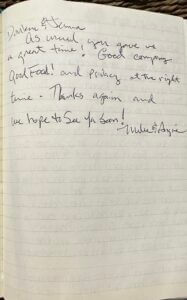 & Jenna
As usual, you gave us
a great time! Good company
Good Food! and privacy at the right
time. Thanks again and
we hope to see ya soon!
Mike &